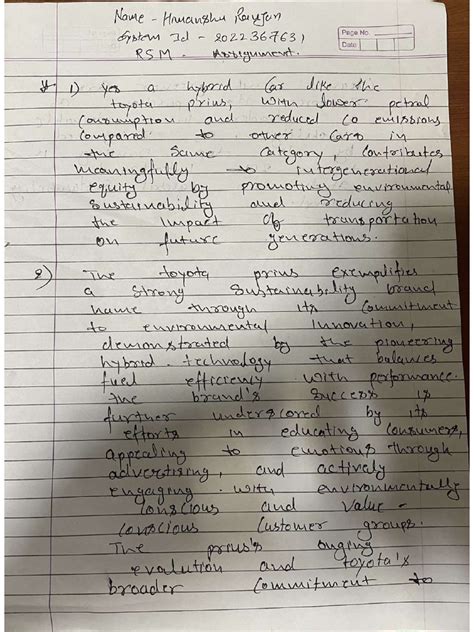 Name - Himanshu Ranjan
System Id - 2022367631
RSM Assignment.
Page No.
Date
1) Yes a hybrid Car like the
toyota prius, with lower petrol
Consumption and reduced Co emissions
Compared to other Cars in
the Same Category, Contributes
meaningfully to intergenerational
equity by promoting environmental
Sustainability and reducing
the impact of transportation
on future generations.
2) The toyota prius exemplifies
a Strong Sustainability brand
name through its Commitment
to environmental Innovation,
demonstrated by the pioneering
hybrid technology that balances
fuel efficiency with performance.
The brand's Success is
further underscored by its
efforts in educating Consumers,
appealing to emotions through
advertising, and actively
engaging with environmentally
Conscious and Value -
Conscious Customer groups.
The prius's onging
evalution and toyota's
broader Commitment to